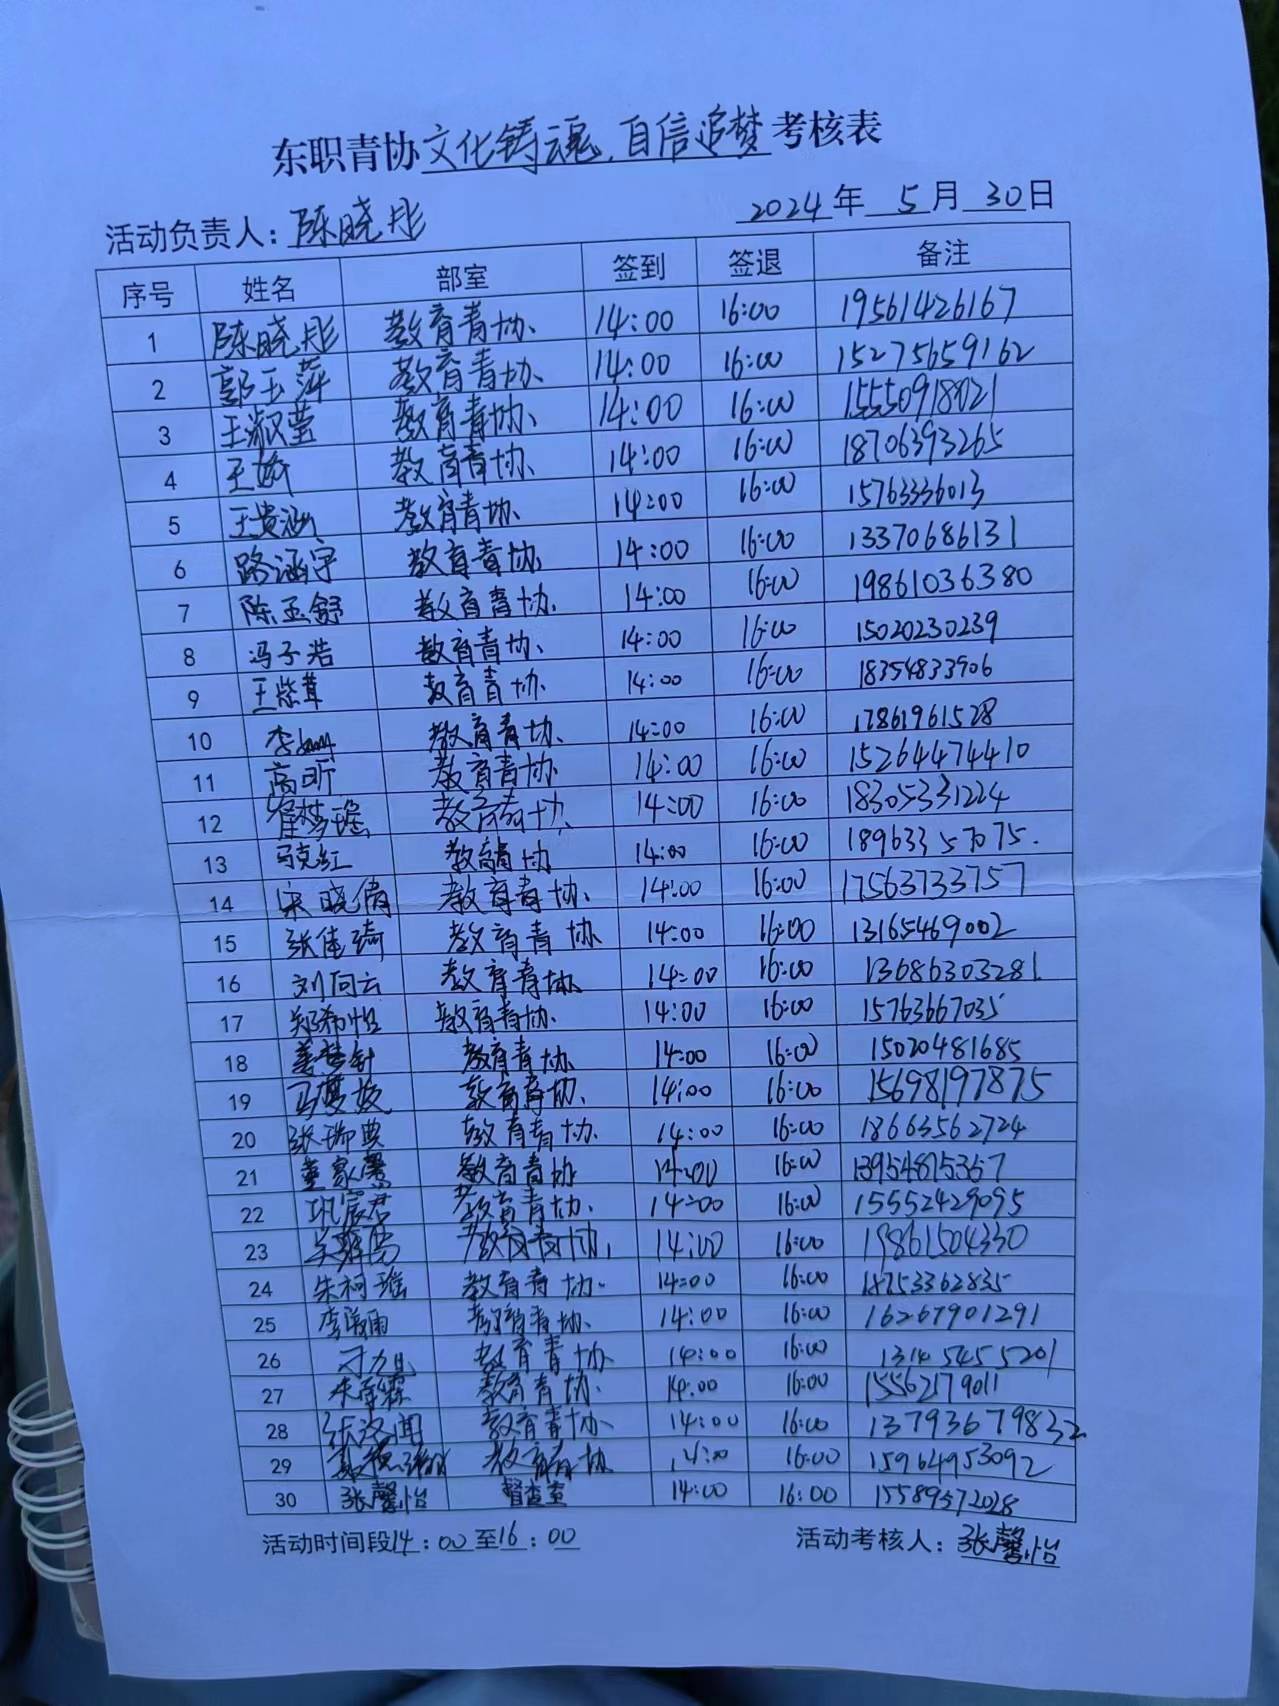 东职青协文化铸魂,自信追梦考核表
活动负责人:陈晓彤 2024年5月30日
序号 姓名 部室 签到 签退 备注
1 陈晓彤 教育青协 14:00 16:00 19561426167
2 郭玉萍 教育青协 14:00 16:00 15275659162
3 王淑莹 教育青协 14:00 16:00 15550918021
4 王娇 教育青协 14:00 16:00 18706393265
5 王贵涵 教育青协 14:00 16:00 15763336013
6 路涵宇 教育青协 14:00 16:00 13370686131
7 陈玉舒 教育青协 14:00 16:00 19861036380
8 冯子浩 教育青协 14:00 16:00 15020230239
9 王紫茸 教育青协 14:00 16:00 18354833906
10 李 教育青协 14:00 16:00 17861961528
11 高昕 教育青协 14:00 16:00 15264474410
12 崔梦瑶 教育青协 14:00 16:00 18305331224
13 马克红 教育青协 14:00 16:00 18963357075.
14 宋晓倩 教育青协 14:00 16:00 17563733757
15 张佳琦 教育青协 14:00 16:00 13165469002
16 刘向云 教育青协 14:00 16:00 13686303281
17 郑希恒 教育青协 14:00 16:00 15763667035
18 姜梦 教育青协 14:00 16:00 15020481685
19 马梦姣 教育青协 14:00 16:00 15698197875
20 张瑞典 教育青协 14:00 16:00 18663562724
21 董家 教育青协 14:00 16:00 13954875367
22 巩宸君 教育青协 14:00 16:00 15552429095
23 教育青协 14:00 16:00 19861504330
24 朱柯瑶 教育青协 14:00 16:00 18753362835
25 李 教育青协 14:00 16:00 16267901291
26 教育青协 14:00 16:00 13145455201
27 朱 霖 教育青协 14:00 16:00 15562179011
28 张洛闻 教育青协 14:00 16:00 13793679832
29 教育青协 14:00 16:00 15964953092
30 张馨怡 督查室 14:00 16:00 15589572028
活动时间段14:00至16:00 活动考核人:张馨怡